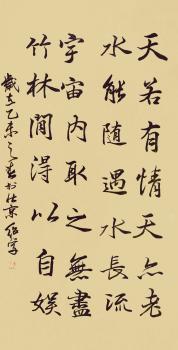 天若有情天亦老
水能隨遇水長流
宇宙內取之無盡
竹林間得以自娛
歲在乙未之春於北京